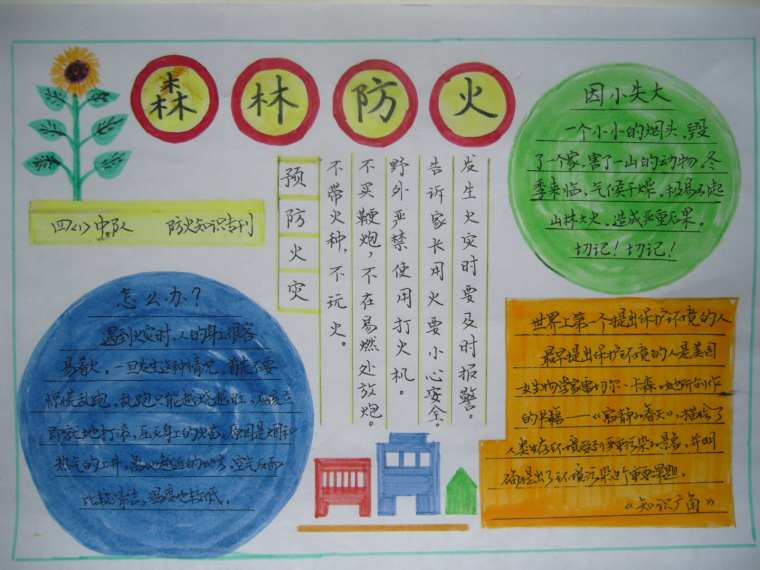 森林防火
四(1)中队 防火知识专刊
预防火灾
不带火种,不玩火。
不买鞭炮,不在易燃处放炮。
野外严禁使用打火机。
告诉家长用火要小心安全。
发生火灾时要及时报警。
因小失大
一个小小的烟头,毁
了一个家,害了一山的动物,冬
季来临,气候干燥,极易引起
山林大火,造成严重后果。
切记!切记!
怎么办?
遇到火灾时,人的身上很容
易着火,一旦发生这种情况,首先不要
惊慌乱跑,乱跑只能越烧越旺,应该立
即就地打滚,压灭身上的火苗,原因是烟和
热气的上升,
比较清洁,温度也较低。
世界上第一个提出保护环境的人
最早提出保护环境的人是美国
女生物学家雷切尔·卡森,她所创作
的书籍——《寂静的春天》,描绘了
人类生存环境受到严重污染的景象,并明
确提出了环境污染这个重要课题。
《知识广角》